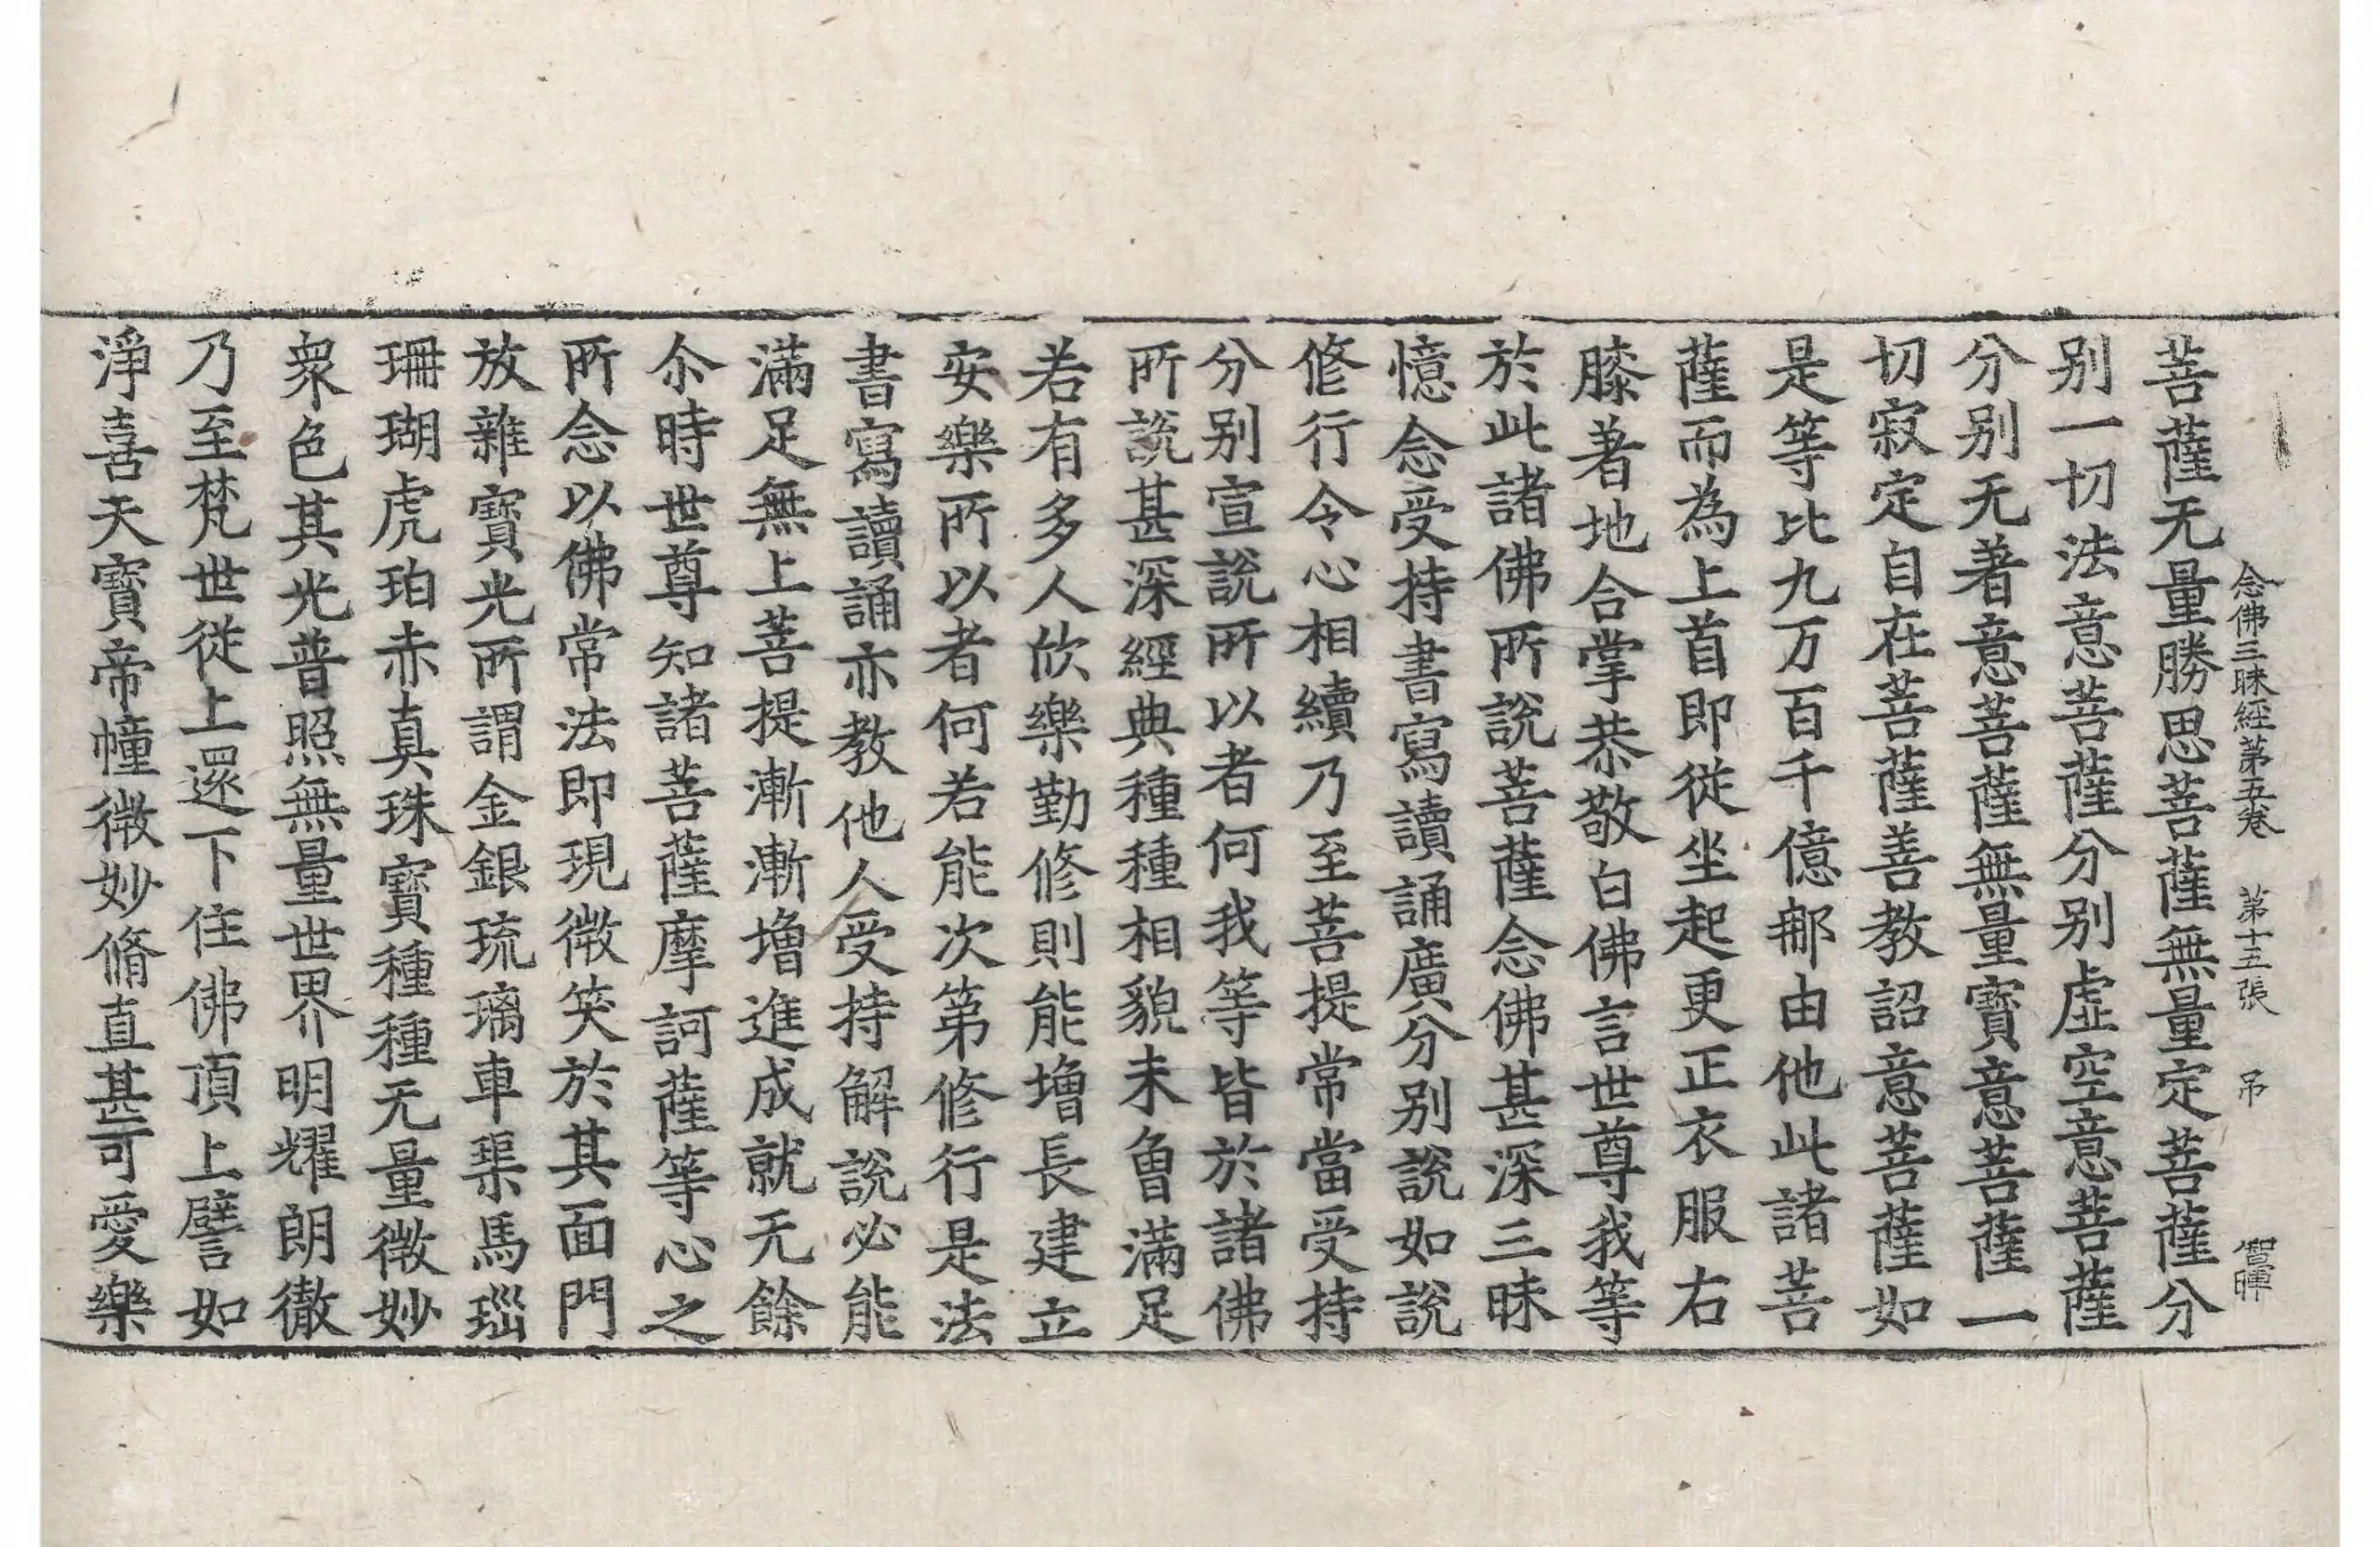 念佛三昧經第五卷 第十五張 吊 智暉
菩薩无量勝思菩薩無量定菩薩分
别一切法意菩薩分别虚空意菩薩
分别无著意菩薩無量寶意菩薩一
切寂定自在菩薩善教詔意菩薩如
是等比九万百千億那由他此諸菩
薩而為上首即從坐起更正衣服右
膝著地合掌恭敬白佛言世尊我等
於此諸佛所說菩薩念佛甚深三昧
憶念受持書寫讀誦廣分别說如說
修行令心相續乃至菩提常當受持
分别宣說所以者何我等皆於諸佛
所說甚深經典種種相貌未曾滿足
若有多人欣樂勤修則能增長建立
安樂所以者何若能次第修行是法
書寫讀誦亦教他人受持解說必能
滿足無上菩提漸漸增進成就无餘
尒時世尊知諸菩薩摩訶薩等心之
所念以佛常法即現微笑於其面門
放雜寶光所謂金銀琉璃車𤦲馬瑙
珊瑚虎珀赤真珠寶種種无量微妙
衆色其光普照無量世界明耀朗徹
乃至梵世從上還下住佛頂上譬如
淨喜天寶帝幢微妙脩直甚可愛樂